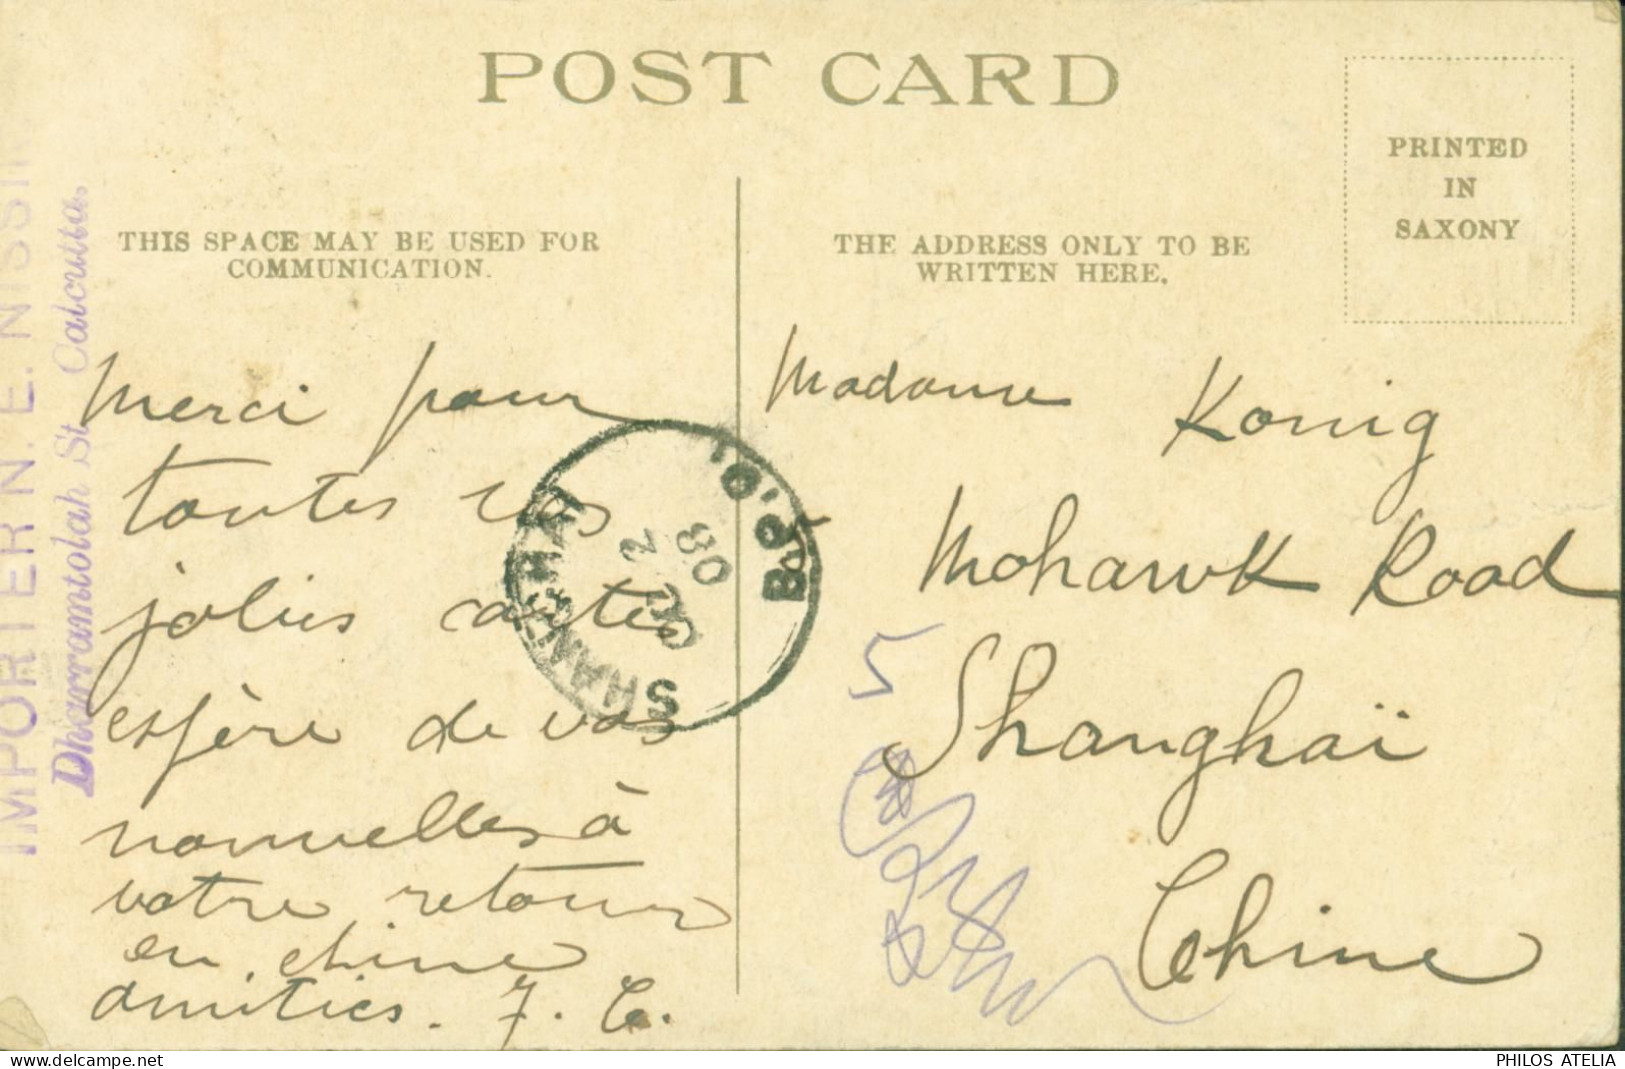 POST CARD
PRINTED
IN
SAXONY
THIS SPACE MAY BE USED FOR
COMMUNICATION.
THE ADDRESS ONLY TO BE
WRITTEN HERE.
IMPORTER N. E. NISSI
Dharramtolah St. Calcutta.
Merci pour
toutes vos
jolies cartes
espère de vos
nouvelles à
votre retour
en chine
amitiés.
Madame Konig
Mohawk Road
Shanghaï
Chine
SHANGHAI
B.P.O.
2
OC
08
5
PHILOS ATELIA